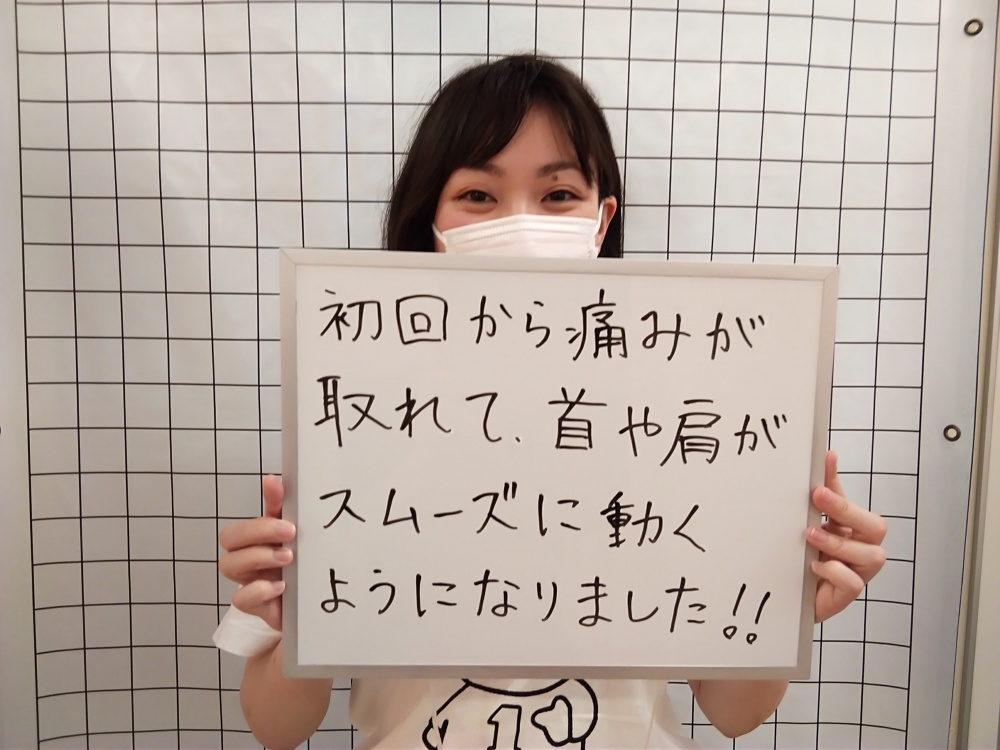 初回から痛みが
取れて、首や肩が
スムーズに動く
ようになりました!!